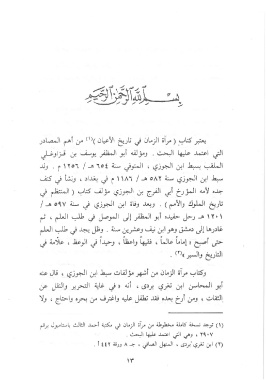 بسم الله الرحمن الرحيم
يعتبر كتاب ( مرآة الزمان في تاريخ الأعيان )(١) من أهم المصادر
التي اعتمد عليها البحث . ومؤلفه أبو المظفر يوسف بن قزاوغلي
الملقب بسبط ابن الجوزي ، المتوفي سنة ٦٥٤ هـ / ١٢٥٦ م . ولد
سبط ابن الجوزي سنة ٥٨٢ هـ / ١١٨٦ م في بغداد ، ونشأ في كنف
جده لأمه المؤرخ أبي الفرج بن الجوزي مؤلف كتاب ( المنتظم في
تاريخ الملوك والأمم ) . وبعد وفاة ابن الجوزي في سنة ٥٩٧ هـ /
١٢٠١ م رحل حفيده أبو المظفر إلى الموصل في طلب العلم ، ثم
غادرها إلى دمشق وهو ابن نيف وعشرين سنة . وظل يجد في طلب العلم
حتى أصبح « إماماً عالماً ، فقيهاً واعظاً ، وحيداً في الوعظ ، علّامة في
التاريخ والسير »(٢) .
وكتاب مرآة الزمان من أشهر مؤلفات سبط ابن الجوزي ، قال عنه
أبو المحاسن ابن تغري بردى ، أنه « في غاية التحرير والنقل عن
الثقات ، ومن أرخ بعده فقد تطفل عليه واغترف من بحره واحتاج ، ولا
(١) توجد نسخة كاملة مخطوطة من مرآة الزمان في مكتبة أحمد الثالث باستانبول برقم
٢٩٠٧ ، وهي التي اعتمد عليها البحث .
(٢) ابن تغري بردى ، المنهل الصافي ، جـ ٨ ورقة ٤٤٢ أ .
١٣